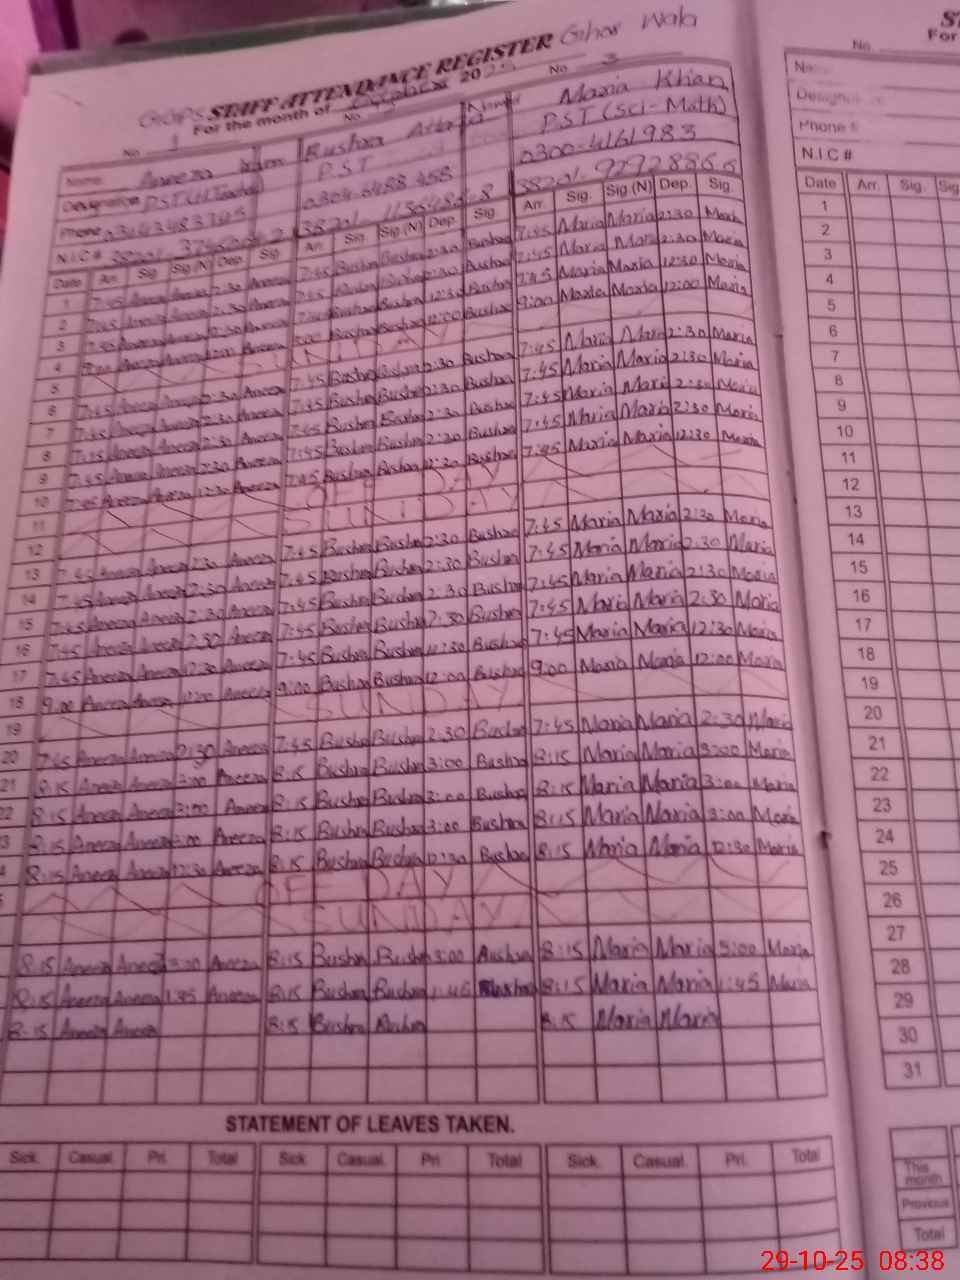 STAFF ATTENDANCE REGISTER Gihar Wala
For the month of October 2025
No. 1 No. No. 3
Name Aneeza Bushra Name Maria Khan
Designation PST P.S.T P.S.T (Sci-Math)
Phone 0300-4161983
N.I.C #
Date Arr. Sig. Sig.(N) Dep. Sig. Arr. Sig. Sig.(N) Dep. Sig. Arr. Sig. Sig.(N) Dep. Sig.
1 7:45 Aneeza Aneeza 2:30 Aneeza 7:45 Bushra Bushra 2:30 Bushra 7:45 Maria Maria 2:30 Maria
2 7:45 Aneeza Aneeza 2:30 Aneeza 7:45 Bushra Bushra 2:30 Bushra 7:45 Maria Maria 2:30 Maria
3 7:45 Aneeza Aneeza 12:30 Aneeza 7:45 Bushra Bushra 12:30 Bushra 7:45 Maria Maria 12:30 Maria
4 9:00 Aneeza Aneeza 12:00 Aneeza 9:00 Bushra Bushra 12:00 Bushra 9:00 Maria Maria 12:00 Maria
5 SUNDAY
6 7:45 Aneeza Aneeza 2:30 Aneeza 7:45 Bushra Bushra 2:30 Bushra 7:45 Maria Maria 2:30 Maria
7 7:45 Aneeza Aneeza 2:30 Aneeza 7:45 Bushra Bushra 2:30 Bushra 7:45 Maria Maria 2:30 Maria
8 7:45 Aneeza Aneeza 2:30 Aneeza 7:45 Bushra Bushra 2:30 Bushra 7:45 Maria Maria 2:30 Maria
9 7:45 Aneeza Aneeza 2:30 Aneeza 7:45 Bushra Bushra 2:30 Bushra 7:45 Maria Maria 2:30 Maria
10 7:45 Aneeza Aneeza 12:30 Aneeza 7:45 Bushra Bushra 12:30 Bushra 7:45 Maria Maria 12:30 Maria
11 OFF DAY
12 SUNDAY
13 7:45 Aneeza Aneeza 2:30 Aneeza 7:45 Bushra Bushra 2:30 Bushra 7:45 Maria Maria 2:30 Maria
14 7:45 Aneeza Aneeza 2:30 Aneeza 7:45 Bushra Bushra 2:30 Bushra 7:45 Maria Maria 2:30 Maria
15 7:45 Aneeza Aneeza 2:30 Aneeza 7:45 Bushra Bushra 2:30 Bushra 7:45 Maria Maria 2:30 Maria
16 7:45 Aneeza Aneeza 2:30 Aneeza 7:45 Bushra Bushra 2:30 Bushra 7:45 Maria Maria 2:30 Maria
17 7:45 Aneeza Aneeza 12:30 Aneeza 7:45 Bushra Bushra 12:30 Bushra 7:45 Maria Maria 12:30 Maria
18 9:00 Aneeza Aneeza 12:00 Aneeza 9:00 Bushra Bushra 12:00 Bushra 9:00 Maria Maria 12:00 Maria
19 SUNDAY
20 7:45 Aneeza Aneeza 2:30 Aneeza 7:45 Bushra Bushra 2:30 Bushra 7:45 Maria Maria 2:30 Maria
21 8:15 Aneeza Aneeza 3:00 Aneeza 8:15 Bushra Bushra 3:00 Bushra 8:15 Maria Maria 3:00 Maria
22 8:15 Aneeza Aneeza 3:00 Aneeza 8:15 Bushra Bushra 3:00 Bushra 8:15 Maria Maria 3:00 Maria
3 8:15 Aneeza Aneeza 3:00 Aneeza 8:15 Bushra Bushra 3:00 Bushra 8:15 Maria Maria 3:00 Maria
4 8:15 Aneeza Aneeza 12:30 Aneeza 8:15 Bushra Bushra 12:30 Bushra 8:15 Maria Maria 12:30 Maria
OFF DAY
SUNDAY
8:15 Aneeza Aneeza 3:00 Aneeza 8:15 Bushra Bushra 3:00 Bushra 8:15 Maria Maria 3:00 Maria
8:15 Aneeza Aneeza 1:45 Aneeza 8:15 Bushra Bushra 1:45 Bushra 8:15 Maria Maria 1:45 Maria
8:15 Aneeza Aneeza 8:15 Bushra Bushra 8:15 Maria Maria
STATEMENT OF LEAVES TAKEN.
Sick. Casual. Pri. Total Sick. Casual. Pri Total Sick. Casual. Pri. Total
S
For
No.
Designation
Phone #
N.I.C #
Date Arr. Sig. Sig
1
2
3
4
5
6
7
8
9
10
11
12
13
14
15
16
17
18
19
20
21
22
23
24
25
26
27
28
29
30
31
This month
Previous
Total
29-10-25 08:38